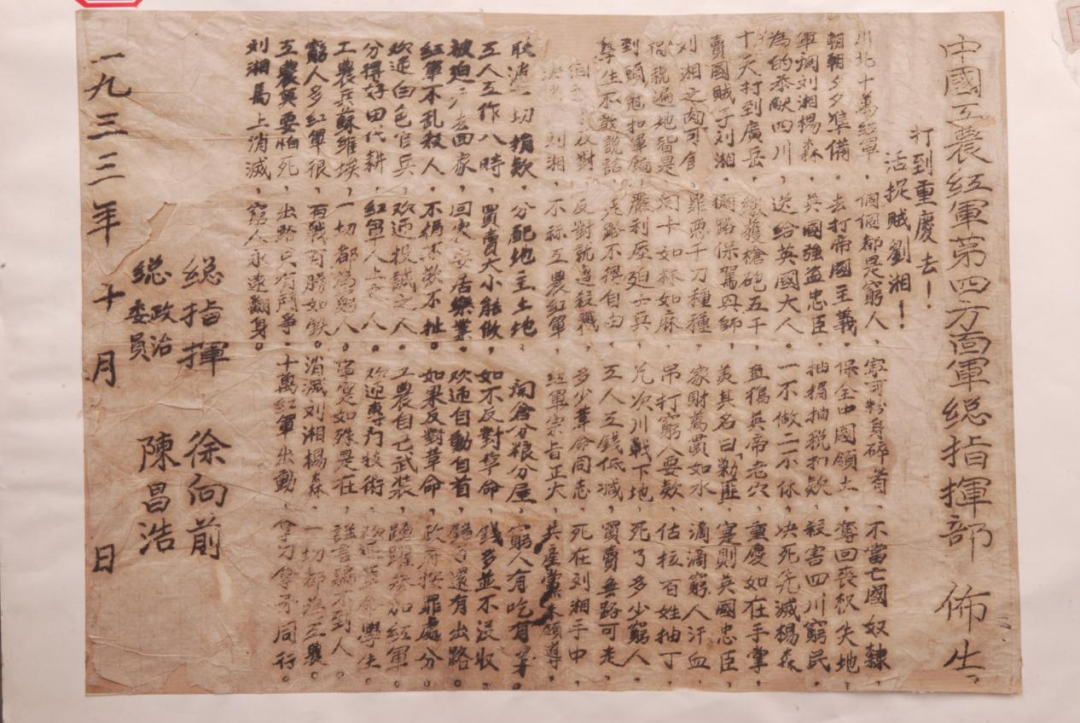 中國工農紅軍第四方面軍総指揮部 佈告
打到重慶去！
活捉賊劉湘！
川北十萬紅軍，個個都是窮人，寧可粉身碎骨，不當亡國奴隸。
朝朝夕夕準備，去打帝國主義，保全中國領土，奪回喪权失地。
軍閥刘湘楊森，英國強盜忠臣，抽捐抽税扣欸，殺害四川窮民。
為的恭献四川，送給英國大人，一不做二不休，决死先滅楊森。
十天打到廣岳，繳獲槍砲五千，直搗英帝老穴，重慶如在手掌。
賣國賊子刘湘，保駕兴師，美其名曰「勦匪」，寔則英國忠臣。
刘湘之肉可食，罪悪千刀種種，家財萬貫如水，滴滴窮人汗血。
税遍地皆是，関卡如林如麻，吊打窮人要欸，估拉百姓抽丁。
到頭尅扣軍餉，嚴刑壓迫士兵，几次川戰下地，死了多少窮人。
學生不敢說話，走路不得自由，工人工錢低减，買賣無路可走。
反對，反對就遭殺戮，多少革命同志，死在刘湘手中。
刘湘，不称工農紅軍，紅軍宗旨正大，共産黨來領導。
取消一切捐欸，分配地主土地，開倉分粮分屋，窮人有吃有穿。
工人工作八時，買賣大小能做，如不反對革命，錢多並不沒收。
被迫去回家，回來安居樂業，欢迎自動自首，還有出路。
紅軍不乱殺人，不捐不欸不扯，如果反對革命，政府按罪處分。
欢迎白色官兵，欢迎投誠之人，工農自己武装，踴躍參加紅軍。
分得好田代耕，紅軍人上之人，欢迎專門技術，欢迎革命學生。
工農兵蘇維埃，一切都為窮人，寔寔如珠是在，謡言騙不到人。
窮人多紅軍很，有戰百勝如鉄，消滅刘湘楊森，一切都為工農。
工農莫要怕死，出路只有鬥爭，十萬紅軍出動，拿刀拿矛同行。
刘湘馬上消滅，窮人永遠翻身。
総指揮 徐向前
総政治委員 陳昌浩
一九三三年十月 日